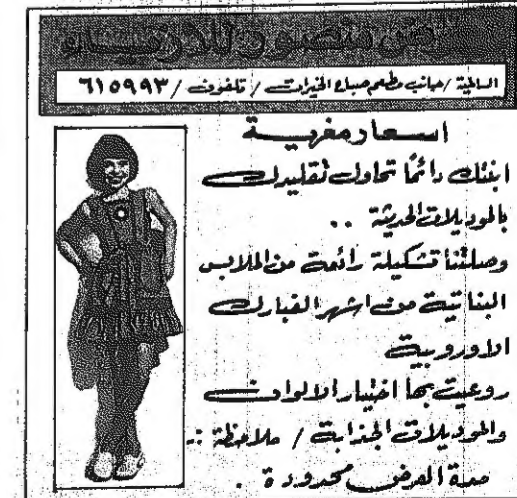 معرض منصور للأزياء
السالمية / جانب مطعم صباح الخيرات / تلفون / ٦١٥٩٩٣
اسعار مغرية
ابنتك دائمًا تحاول تقليدك
بالموديلات الحديثة ..
وصلتنا تشكيلة رائعة من الملابس
البناتية من اشهر الفبارك
الاوروبية
روعيت بها اختيار الالوان
والموديلات الجذابة / ملاحظة :-
مدة العرض محدودة .